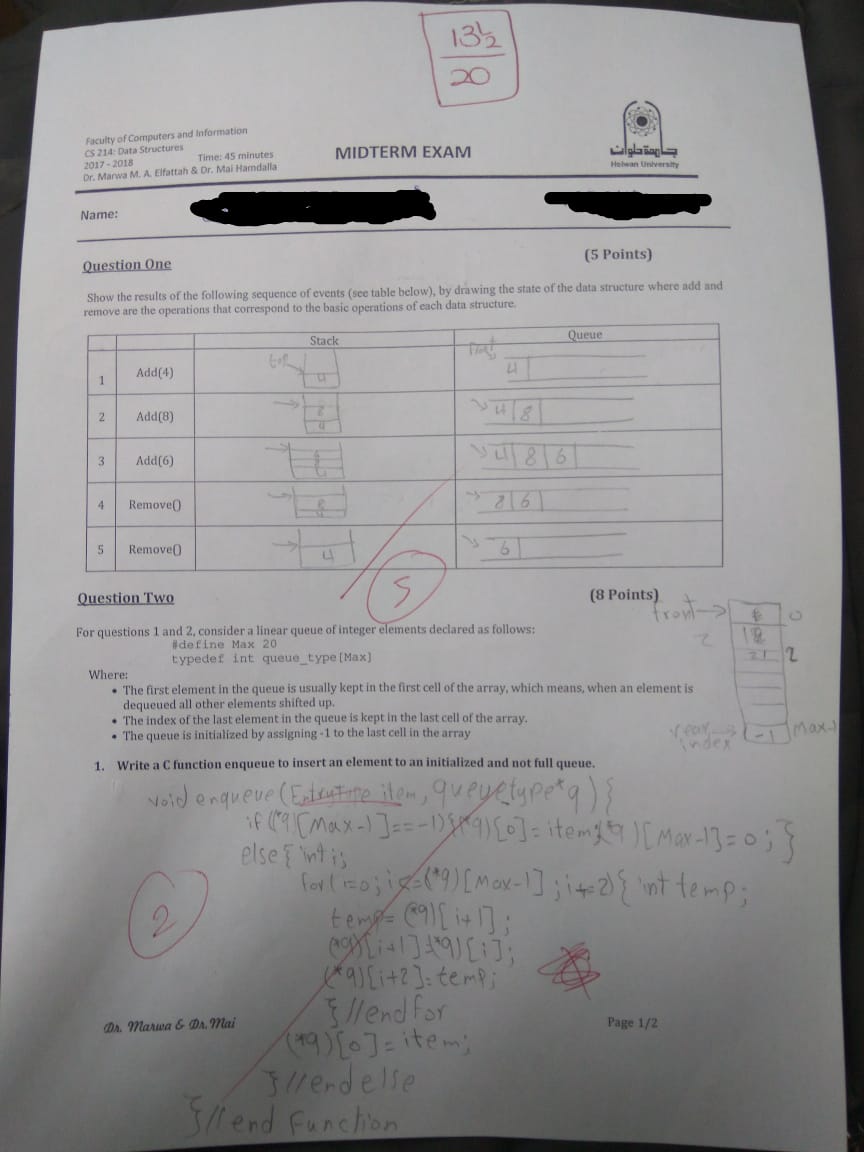 13½
20
Faculty of Computers and Information
CS 214: Data Structures
2017 - 2018 Time: 45 minutes
Dr. Marwa M. A. Elfattah & Dr. Mai Hamdalla
MIDTERM EXAM
جامعة حلوان
Helwan University
Name:
Question One (5 Points)
Show the results of the following sequence of events (see table below), by drawing the state of the data structure where add and
remove are the operations that correspond to the basic operations of each data structure.
Stack Queue
1 Add(4) top 4 front 4
2 Add(8) 8 4 4 8
3 Add(6) 4 8 6
4 Remove() 8 4 8 6
5 Remove() 4 6
5
Question Two (8 Points)
For questions 1 and 2, consider a linear queue of integer elements declared as follows:
#define Max 20
typedef int queue_type[Max]
Where:
• The first element in the queue is usually kept in the first cell of the array, which means, when an element is
dequeued all other elements shifted up.
• The index of the last element in the queue is kept in the last cell of the array.
• The queue is initialized by assigning -1 to the last cell in the array
front 0
2
21 2
rear index -1 Max-1
1. Write a C function enqueue to insert an element to an initialized and not full queue.
void enqueue(EntryType item, queuetype*q){
if((*q)[Max-1]==-1){(*q)[0]=item;(*q)[Max-1]=0;}
else{ int i;
for(i=0;i<=(*q)[Max-1];i+=2){ int temp;
temp=(*q)[i+1];
(*q)[i+1]=(*q)[i];
(*q)[i+2]=temp;
}//end for
(*q)[0]=item;
}//end else
}//end Function
2
Dr. Marwa & Dr. Mai Page 1/2